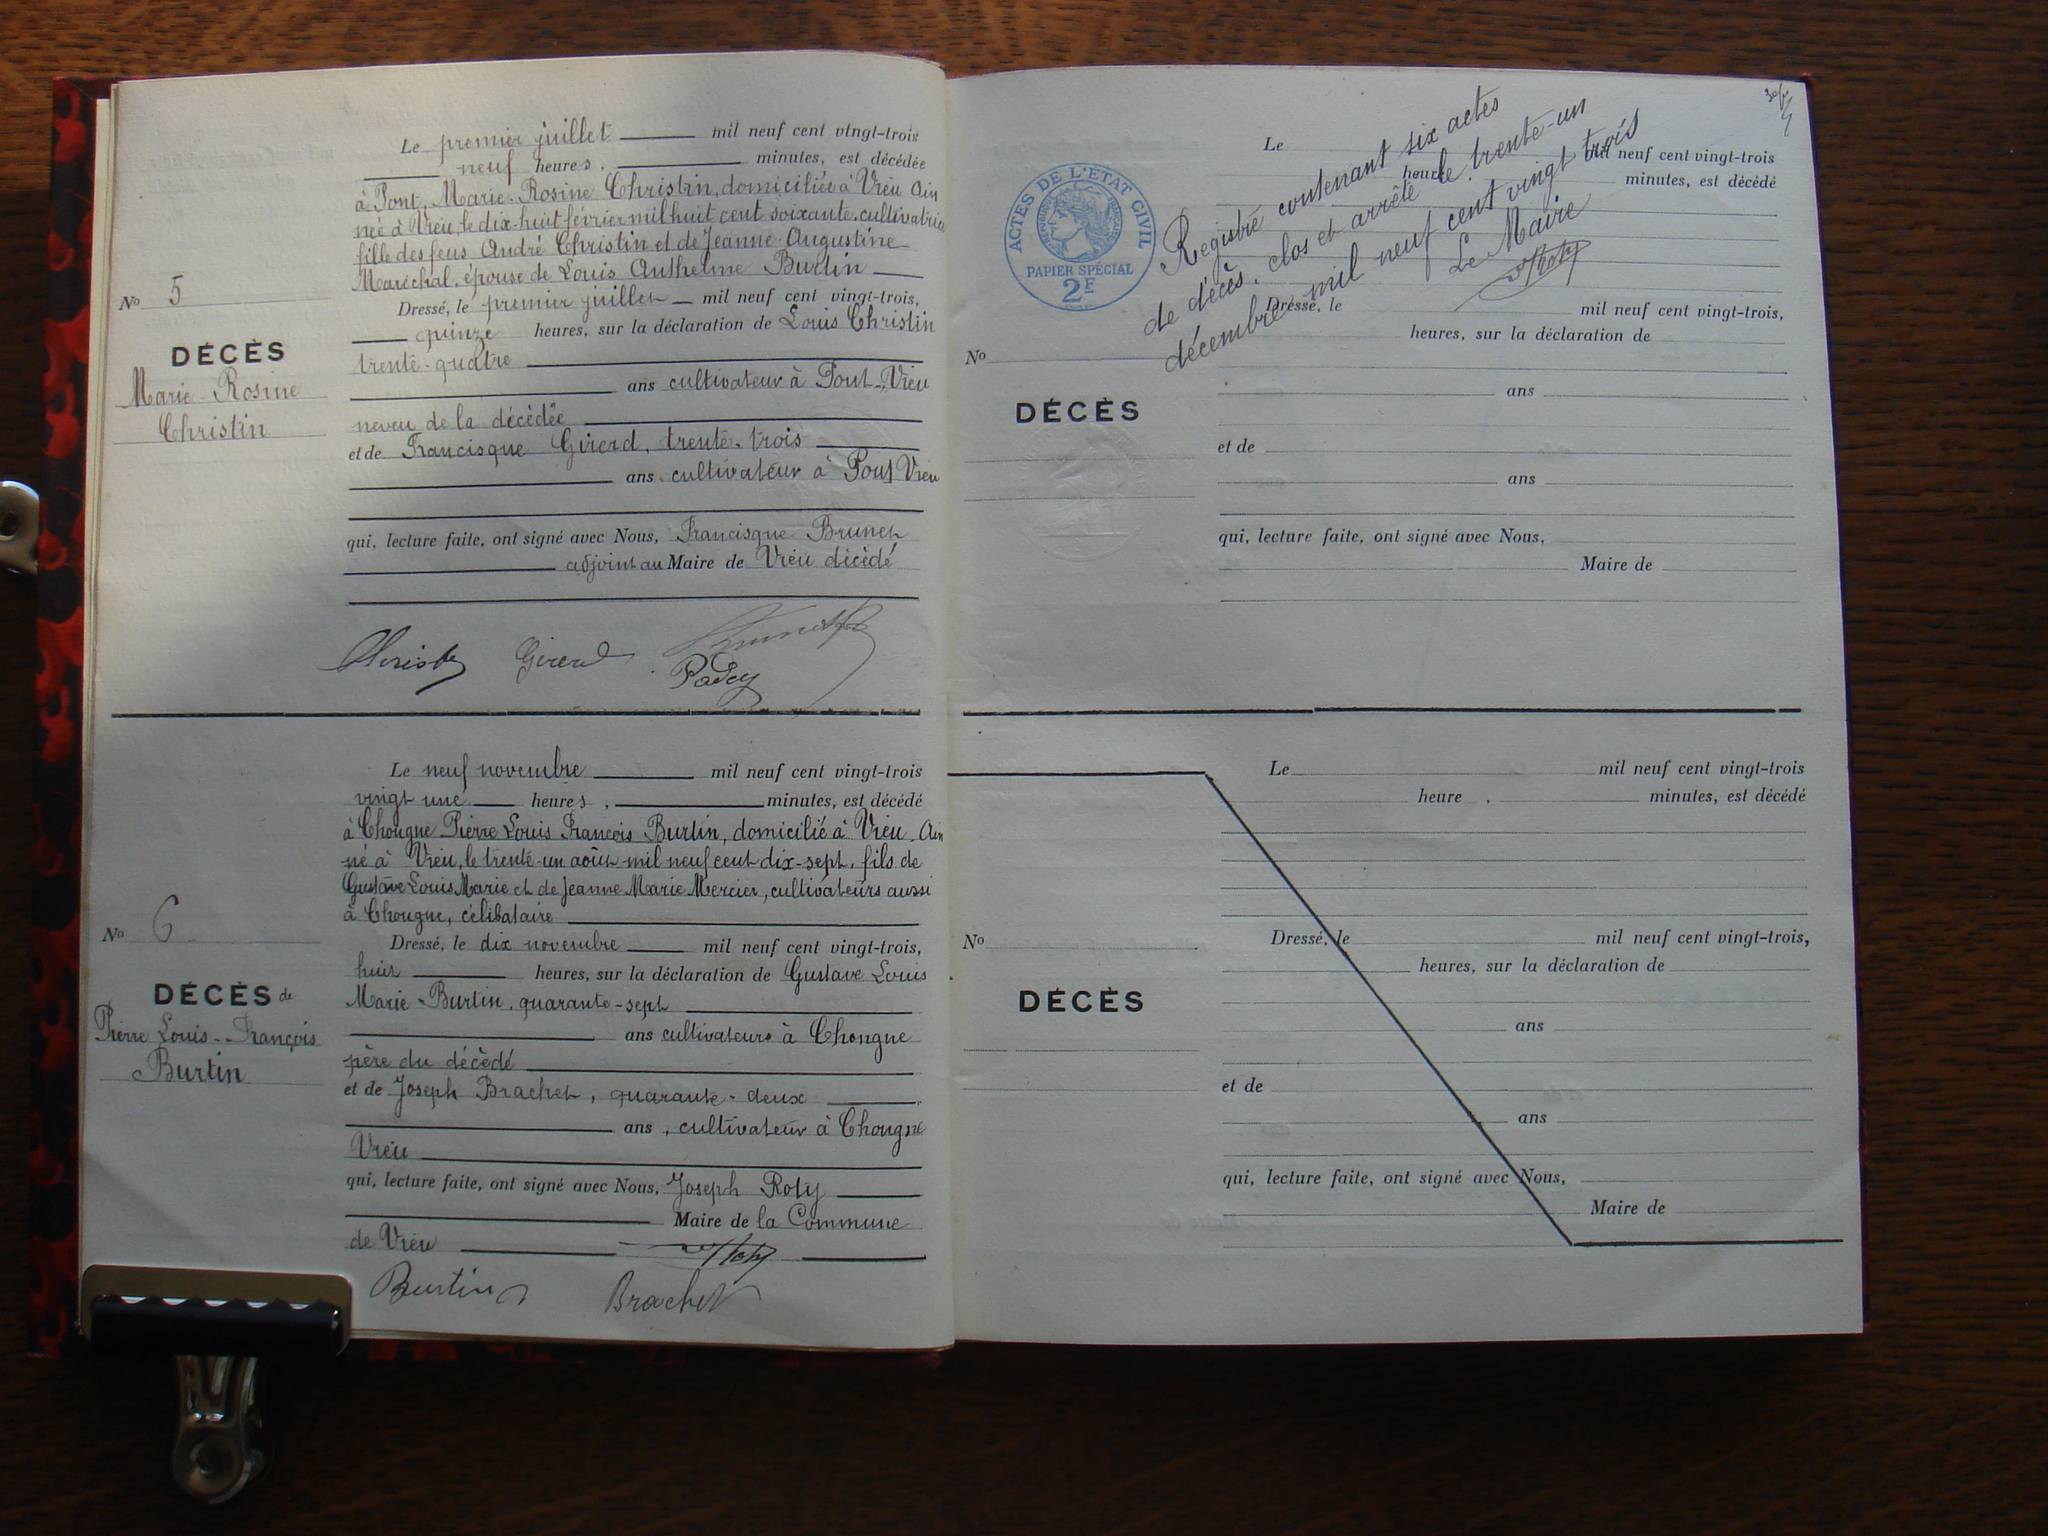 Le premier juillet mil neuf cent vingt-trois
neuf heures, minutes, est décédée
à Pont, Marie-Rosine Christin, domiciliée à Vieu Ain
née à Vieu, le dix-huit février mil huit cent soixante. cultivatrice
fille des feus André Christin et de Jeanne-Augustine
Maréchal, épouse de Louis Anthelme Burtin
No 5
Dressé, le premier juillet mil neuf cent vingt-trois,
quinze heures, sur la déclaration de Louis Christin
DÉCÈS
trente-quatre
Marie-Rosine
ans cultivateur à Pont-Vieu
Christin
neveu de la décédée
et de Francisque Girerd, trente-trois
ans cultivateur à Pont Vieu
qui, lecture faite, ont signé avec Nous, Francisque Brunet
adjoint au Maire de Vieu décédé
Christin Girerd Brunet
Le neuf novembre mil neuf cent vingt-trois
vingt une heures, minutes, est décédé
à Chongne Pierre Louis François Burtin, domicilié à Vieu. Ain
né à Vieu, le trente-un août mil neuf cent dix-sept, fils de
Gustave Louis Marie et de Jeanne Marie Mercier, cultivateurs aussi
à Chongne, célibataire
No 6
Dressé, le dix novembre mil neuf cent vingt-trois,
huit heures, sur la déclaration de Gustave Louis
DÉCÈS de
Marie-Burtin, quarante-sept
Pierre Louis-François
ans cultivateurs à Chongne
Burtin
père du décédé
et de Joseph Brachet, quarante-deux
ans, cultivateur à Chongne
Vieu
qui, lecture faite, ont signé avec Nous, Joseph Roty
Maire de la Commune
de Vieu Roty
Burtin Brachet
Registre contenant six actes
de décès, clos et arrêté le trente-un
décembre mil neuf cent vingt trois
Le Maire
Roty
ACTES DE L'ETAT CIVIL
PAPIER SPÉCIAL
2F
Le mil neuf cent vingt-trois
heure minutes, est décédé
Dressé, le mil neuf cent vingt-trois,
heures, sur la déclaration de
No
ans
DÉCÈS
et de
ans
qui, lecture faite, ont signé avec Nous,
Maire de
Le mil neuf cent vingt-trois
heure , minutes, est décédé
No
Dressé, le mil neuf cent vingt-trois,
heures, sur la déclaration de
DÉCÈS
ans
et de
ans
qui, lecture faite, ont signé avec Nous,
Maire de